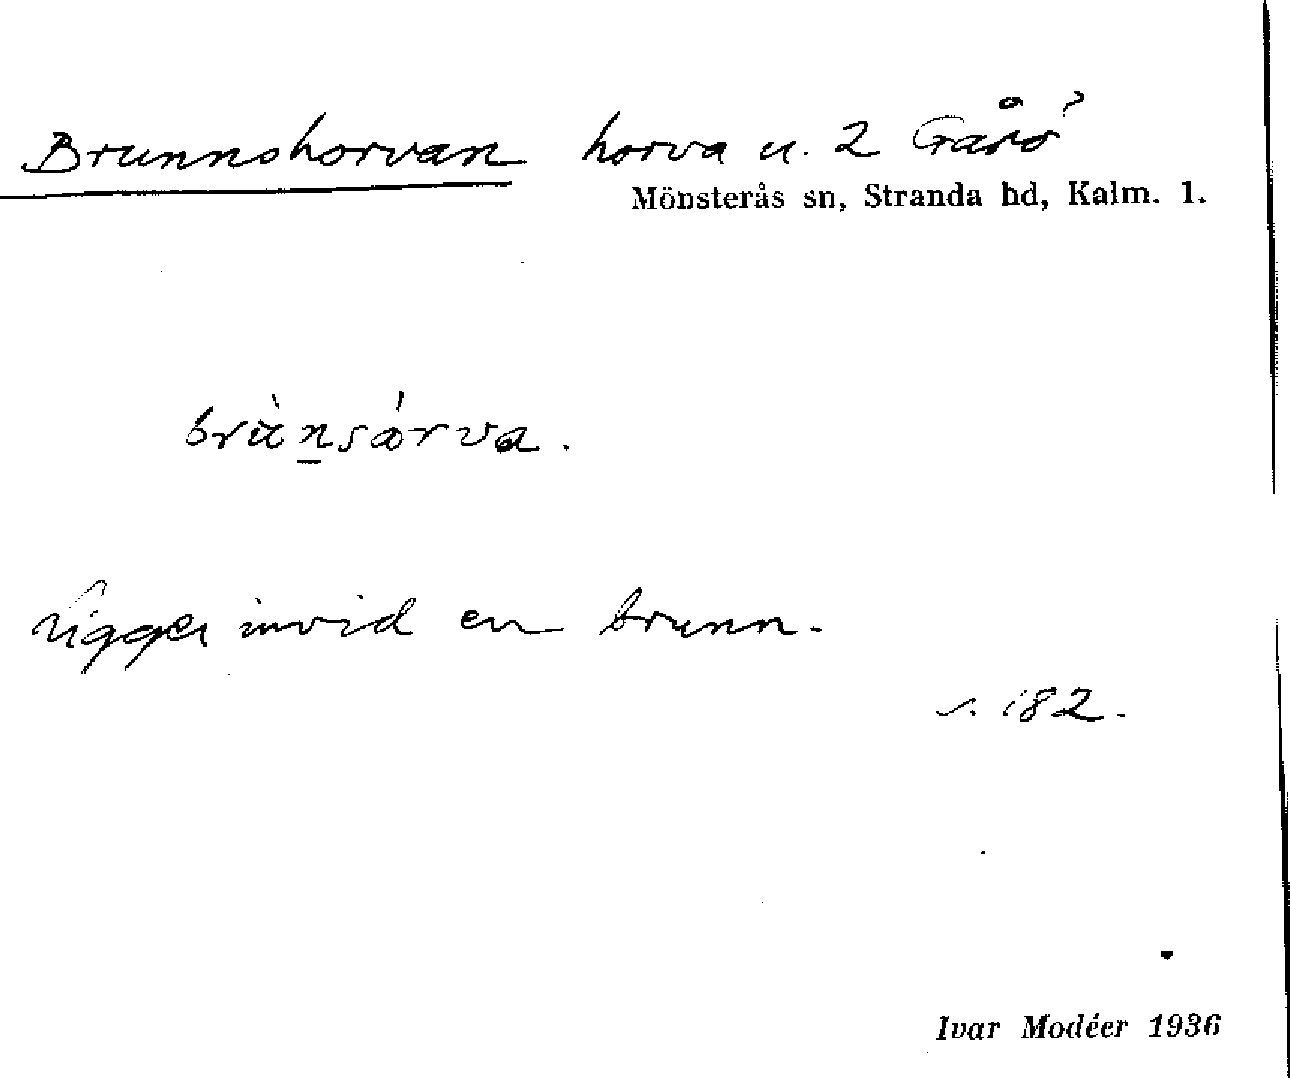 Brunnshorvan horva u. 2 Gåsö
Mönsterås sn, Stranda hd, Kalm. l.
brùnsárva.
Ligger invid en brunn.
s. 182.
Ivar Modéer 1936